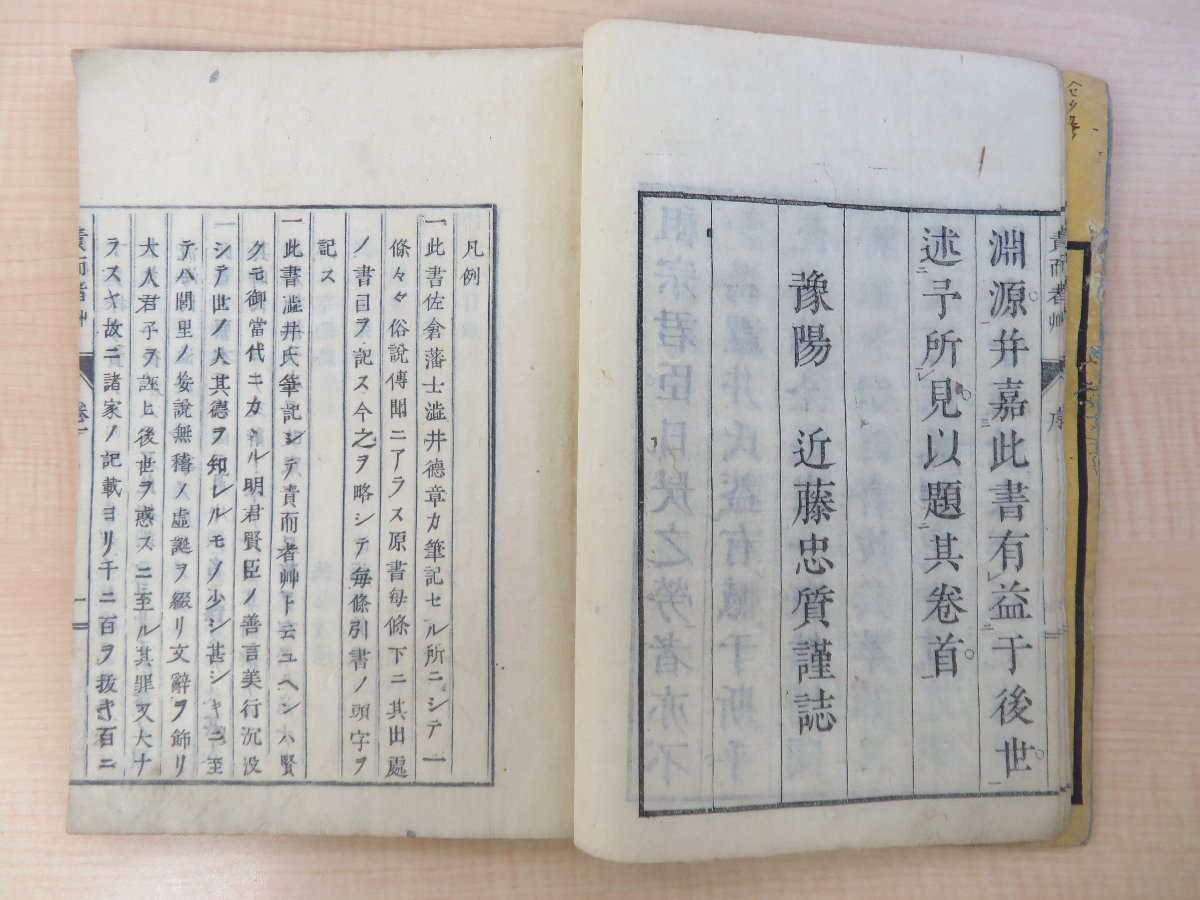 淵源幷嘉此書有益于後世
述予所見以題其卷首
豫陽 近藤忠質謹誌
責而者艸 序
凡例
一此書佐倉藩士澁井德章カ筆記セル所ニシテ一
條々々俗說傳聞ニアラス原書每條下ニ其出處
ノ書目ヲ記ス今之ヲ略シテ每條引書ノ頭字ヲ
記ス
一此書澁井氏筆記シテ責而者艸ト云ユヘンハ賢
クモ御當代ニカヽル明君賢臣ノ善言美行沉沒
シテ世ノ人其德ヲ知レルモノ少シ甚シキニ至
テハ閭里ノ妄說無稽ノ虛誕ヲ綴リ文辭ヲ飾リ
大人君子ヲ誣ヒ後世ヲ惑スニ至ル其罪又大ナ
ラスヤ故ニ諸家ノ記載ヨリ千ニ百ヲ拔キ百ニ
責而者艸 卷一 一